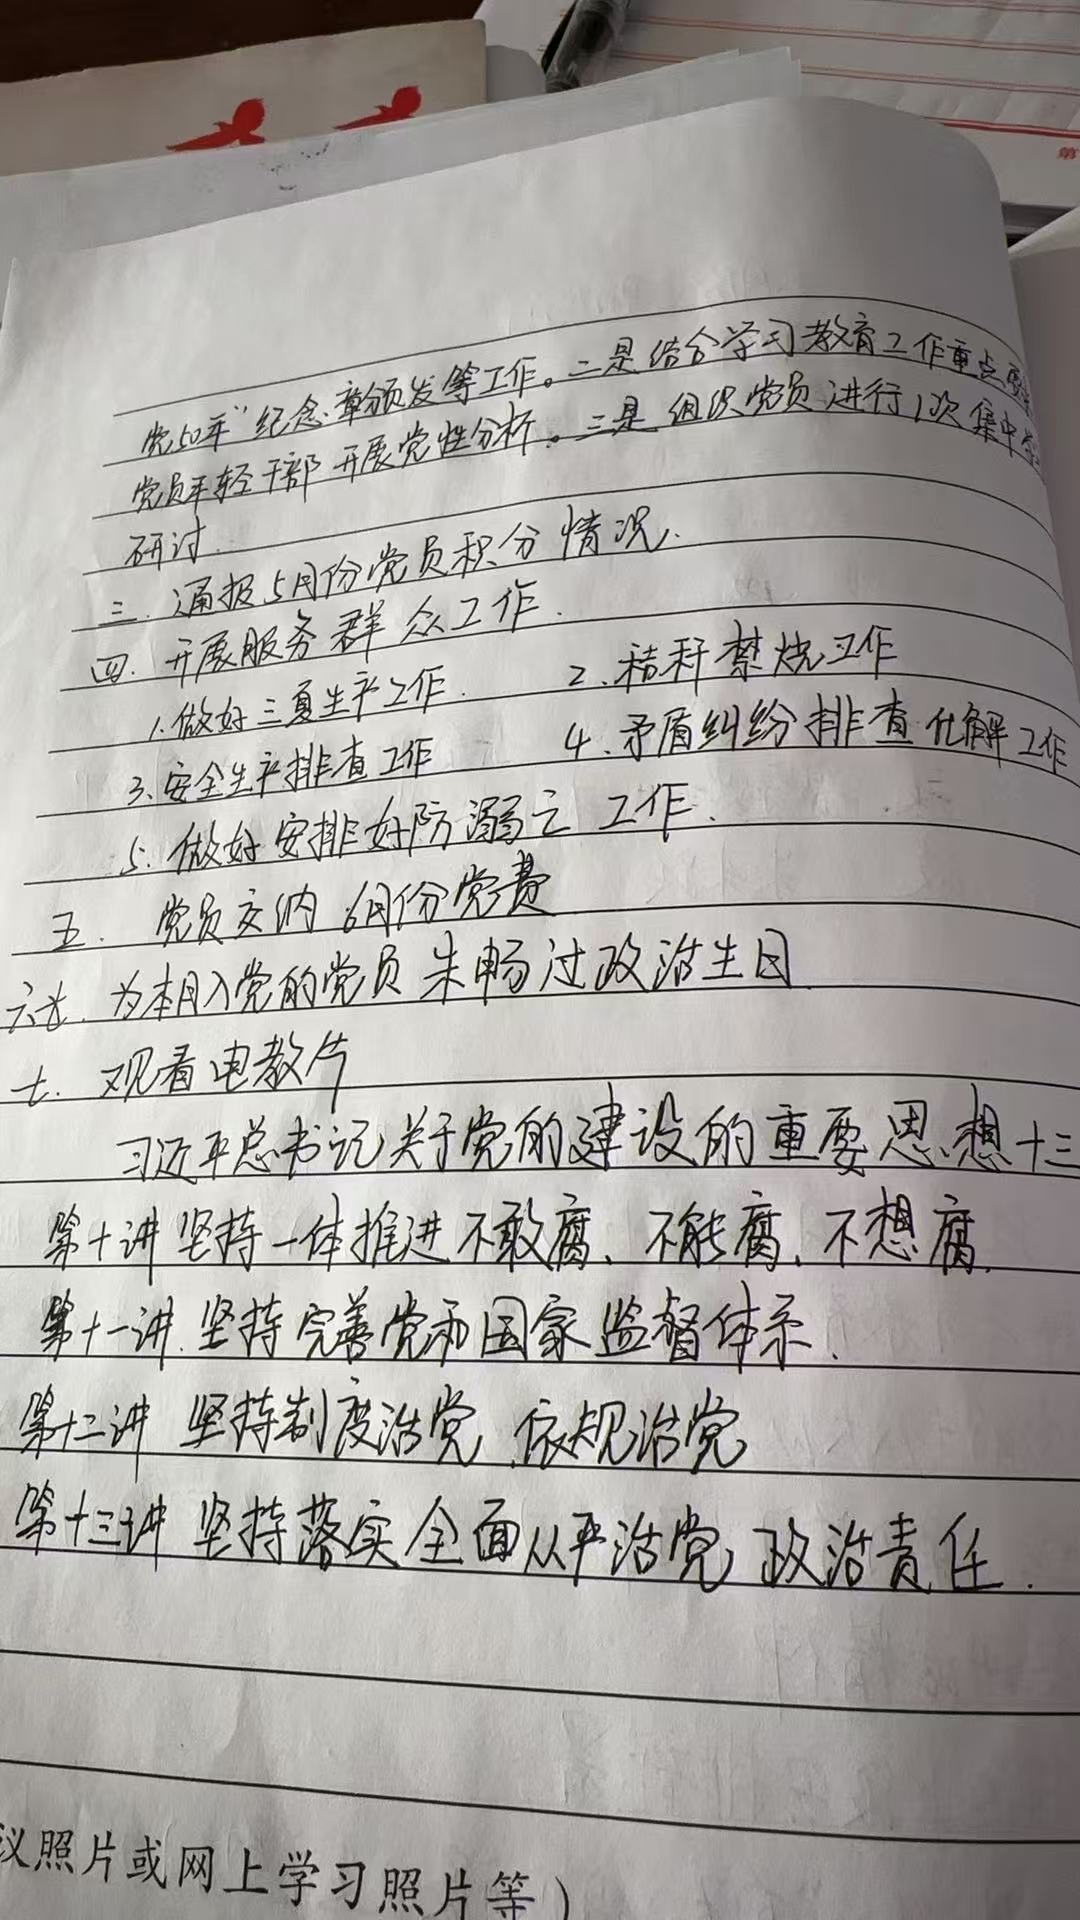 第
党50年”纪念章颁发等工作。二是结合学习教育工作重点
党员年轻干部开展党性分析。三是组织党员进行1次集中
研讨.
三.通报5月份党员积分情况.
四.开展服务群众工作.
1.做好三夏生产工作. 2.秸秆禁烧工作
3.安全生产排查工作 4.矛盾纠纷排查化解工作
5.做好安排好防溺亡工作.
五. 党员交纳6月份党费
六. 为本月入党的党员朱畅过政治生日
七. 观看电教片
习近平总书记关于党的建设的重要思想十三
第十讲 坚持一体推进不敢腐、不能腐、不想腐.
第十一讲.坚持完善党和国家监督体系.
第十二讲 坚持制度治党、依规治党
第十三讲 坚持落实全面从严治党政治责任.
议照片或网上学习照片等）